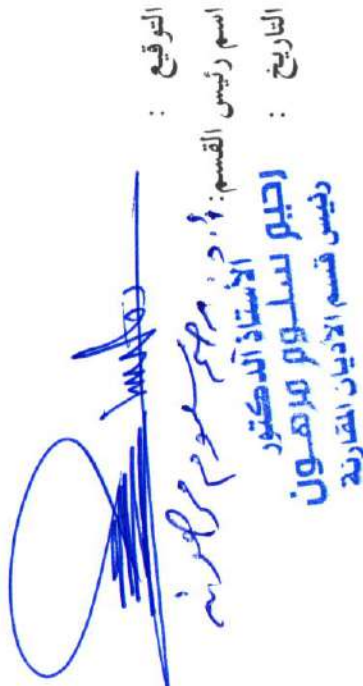 التوقيع :
اسم رئيس القسم: أ. د. رحيم سلوم مرهون
التاريخ :
الأستاذ الدكتور
رحيم سلوم مرهون
رئيس قسم الأديان المقارنة